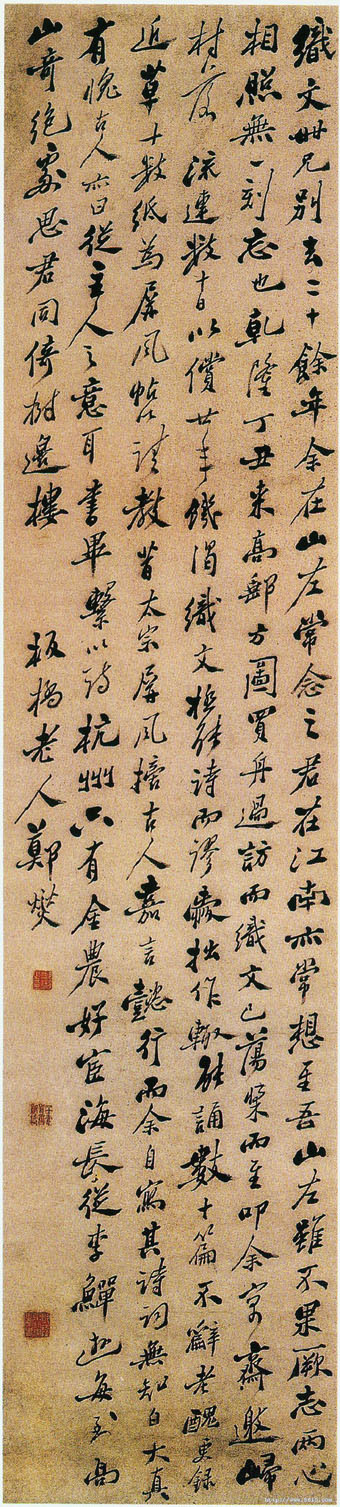 織文世兄別去二十餘年余在山左常念之君在江南亦常想至吾山左雖不果厥志兩心
相照無一刻忘也乾隆丁丑來高郵方圖買舟過訪而織文已蕩槳而至叩余寓齋邀歸
村落流連數十日以償廿年饑渴織文極能詩而謬愛拙作輒能誦數十篇不辭老醜更錄
近草十數紙為屏風帖以請教昔太宗屏風搨古人嘉言懿行而余自寫其詩詞無知自大真
有愧古人亦曰從主人之意耳書畢繫以詩杭州只有金農好宦海長從李鱓遊每到高
山奇絕處思君同倚樹邊樓
板橋老人鄭燮